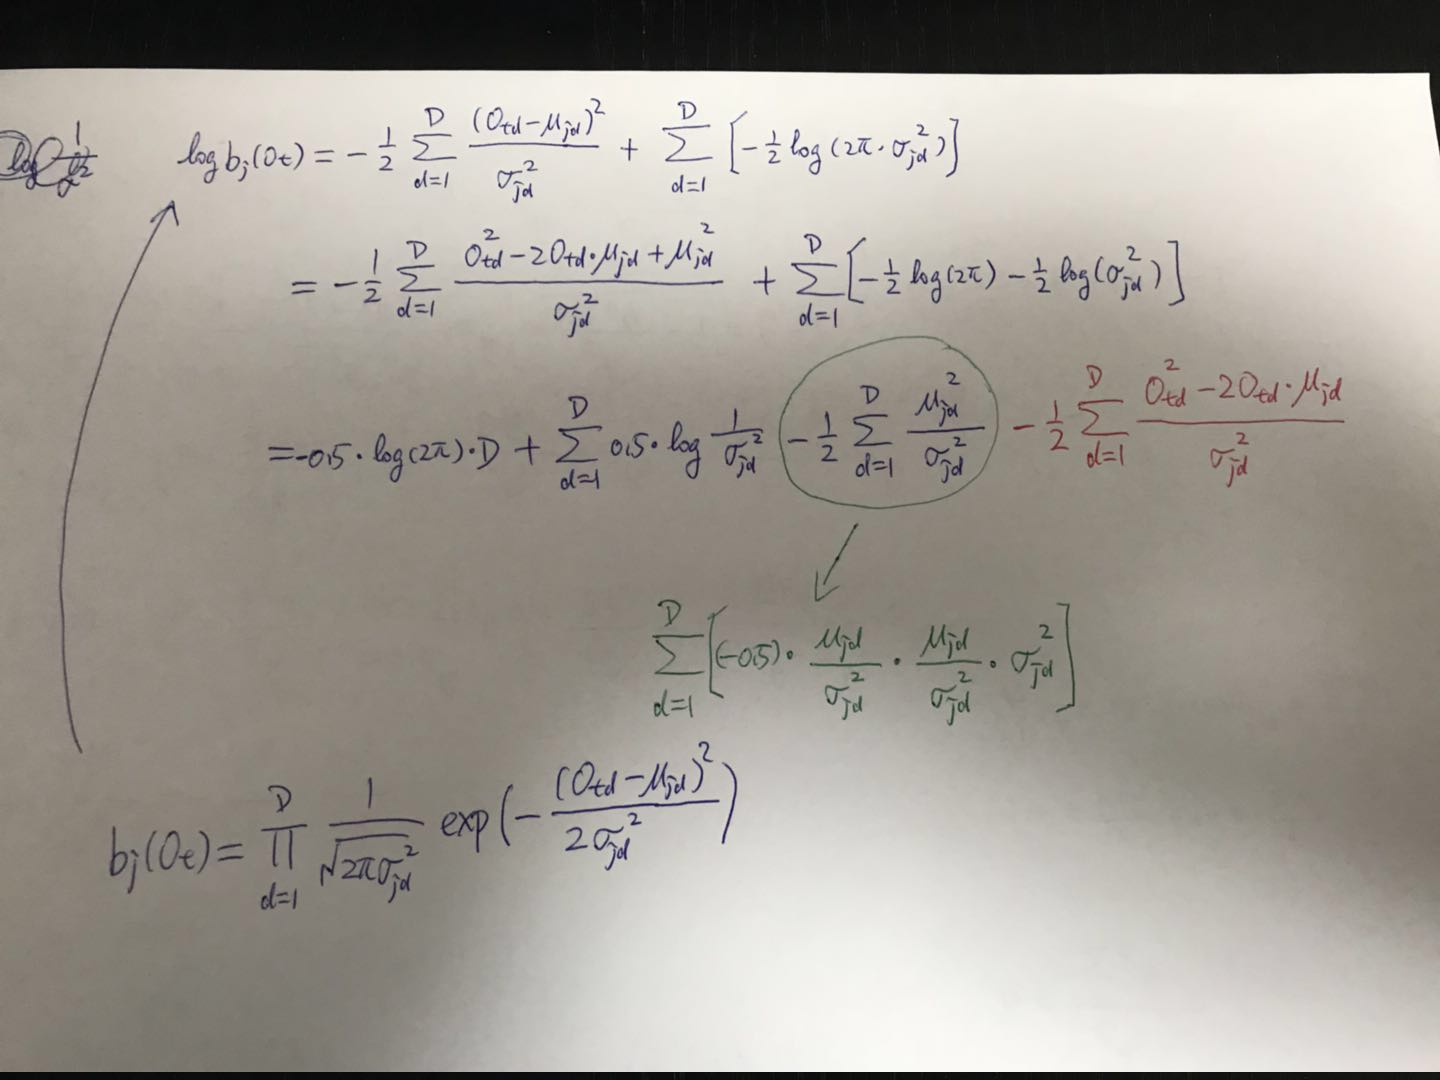 log b_j(O_t) = -\frac{1}{2} \sum_{d=1}^{D} \frac{(O_{td} - μ_{jd})^2}{σ_{jd}^2} + \sum_{d=1}^{D} [-\frac{1}{2} log(2π · σ_{jd}^2)]
= -\frac{1}{2} \sum_{d=1}^{D} \frac{O_{td}^2 - 2O_{td} · μ_{jd} + μ_{jd}^2}{σ_{jd}^2} + \sum_{d=1}^{D} [-\frac{1}{2} log(2π) - \frac{1}{2} log(σ_{jd}^2)]
= -0.5 · log(2π) · D + \sum_{d=1}^{D} 0.5 · log \frac{1}{σ_{jd}^2} - \frac{1}{2} \sum_{d=1}^{D} \frac{μ_{jd}^2}{σ_{jd}^2} - \frac{1}{2} \sum_{d=1}^{D} \frac{O_{td}^2 - 2O_{td} · μ_{jd}}{σ_{jd}^2}
\sum_{d=1}^{D} [(-0.5) · \frac{μ_{jd}}{σ_{jd}^2} · \frac{μ_{jd}}{σ_{jd}^2} · σ_{jd}^2]
b_j(O_t) = \prod_{d=1}^{D} \frac{1}{\sqrt{2πσ_{jd}^2}} exp(-\frac{(O_{td} - μ_{jd})^2}{2σ_{jd}^2})